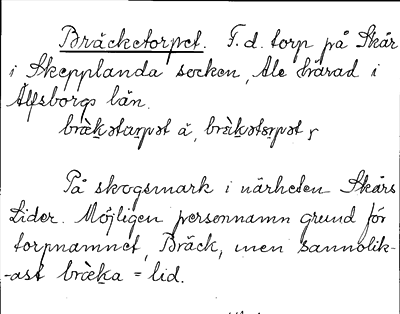 Bräcketorpet. F. d. torp på Skår
i Skepplanda socken, Ale härad i
Älfsborgs län.
På skogsmark i närheten Skårs
Lider. Möjligen personnamn grund för
torpnamnet, Bräck, men sannolik-
-ast bræ̀ka = lid.